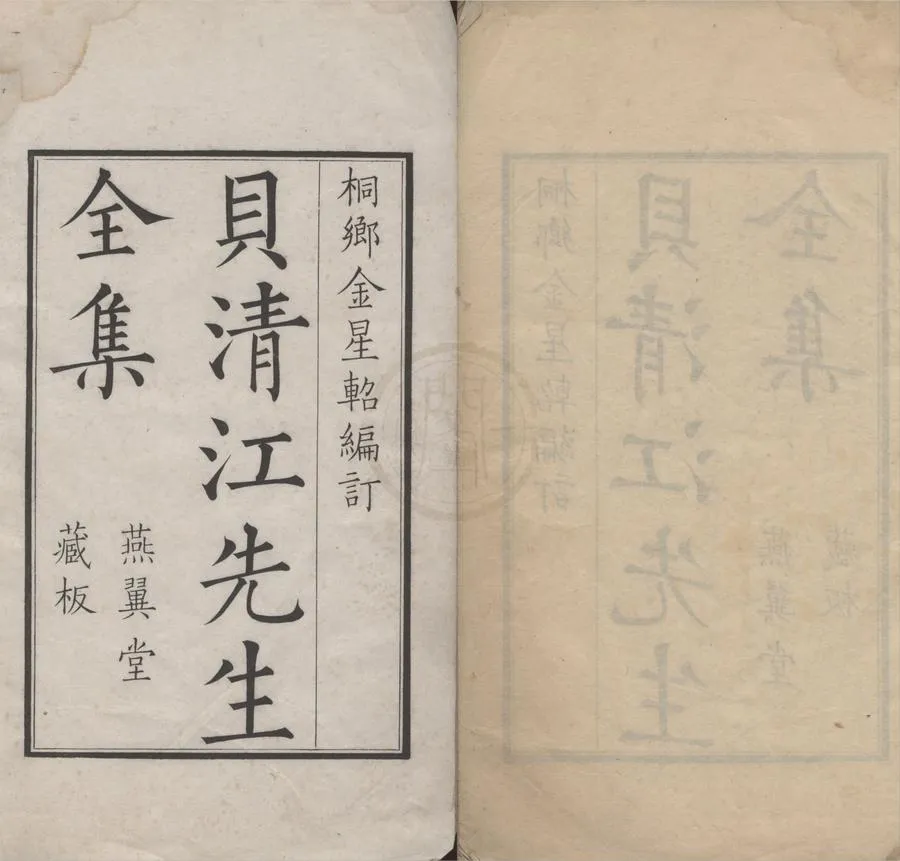 桐鄉金星軺編訂
貝清江先生
全集
燕翼堂
藏板